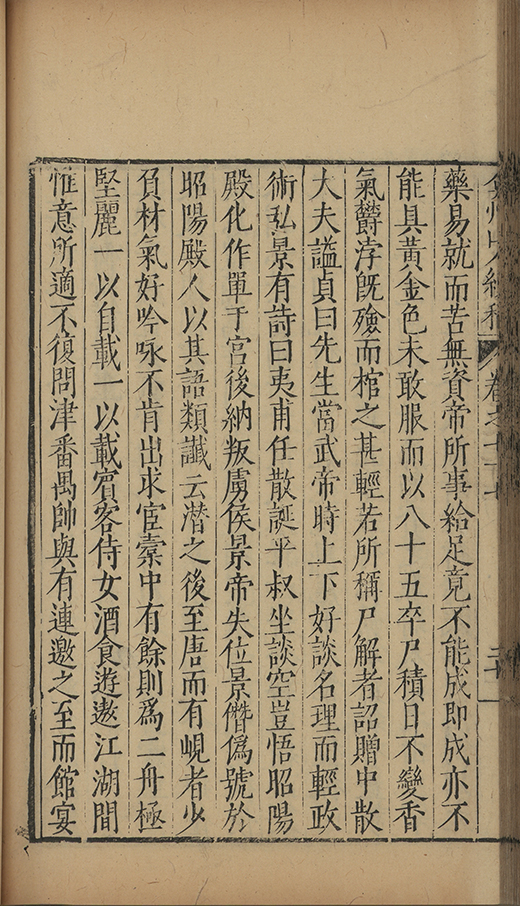 弇州山人續稿 卷之
藥易就而苦無資帝所事給足竟不能成即成亦不
能具黃金色未敢服而以八十五卒尸積日不變香
氣欝浡既殮而棺之甚輕若所稱尸解者詔贈中散
大夫謚貞曰先生當武帝時上下好談名理而輕政
術弘景有詩曰夷甫任散誕平叔坐談空豈悟昭陽
殿化作單于宮後納叛虜侯景帝失位景僭僞號於
昭陽殿人以其語類讖云潛之後至唐而有峴者少
負材氣好吟咏不肯出求宦橐中有餘則爲二舟極
堅麗一以自載一以載賓客侍女酒食遊遨江湖間
惟意所適不復問津番禺帥與有連邀之至而館宴